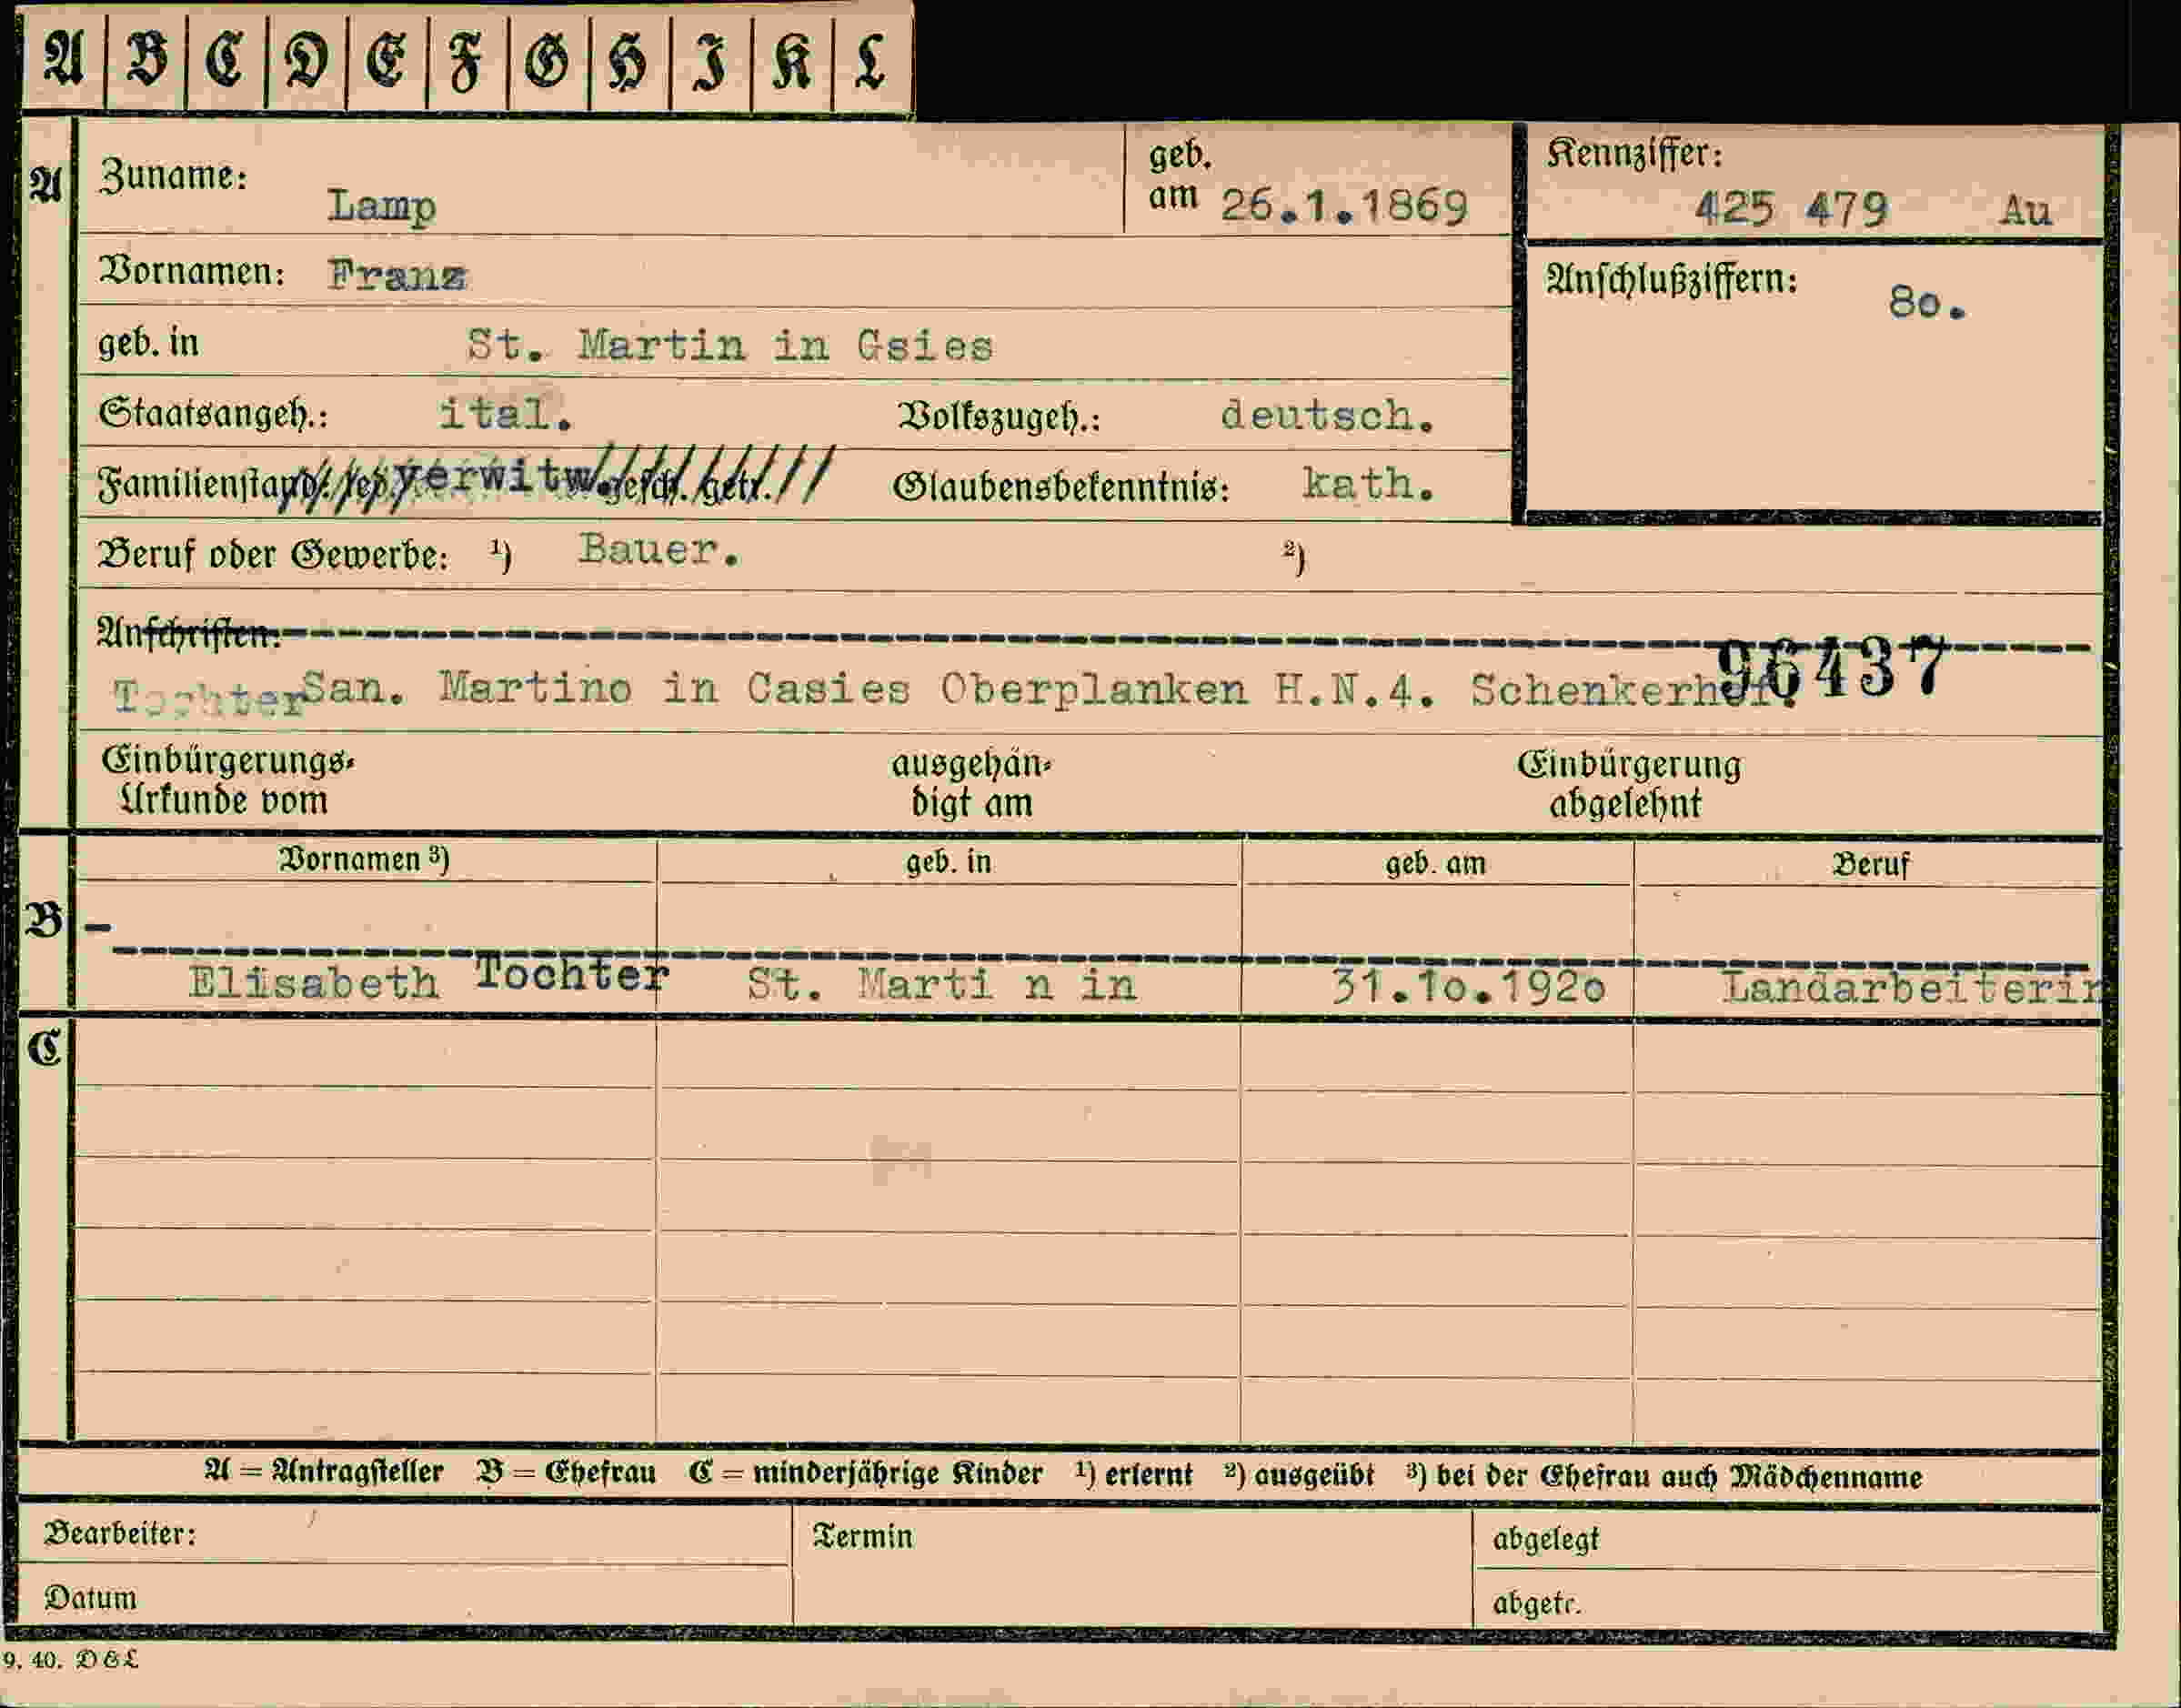 A B C D E F G H I K L
A
Zuname: Lamp
geb. am 26.1.1869
Kennziffer: 425 479 Au
Vornamen: Franz
Anschlußziffern: 80.
geb. in St. Martin in Gsies
Staatsangeh.: ital. Volkszugeh.: deutsch.
Familienstand: verwitw. gesch. getr. Glaubensbekenntnis: kath.
Beruf oder Gewerbe: ¹) Bauer. ²)
Anschriften:
96437
Tochter San. Martino in Casies Oberplanken H.N.4. Schenkerhof.
Einbürgerungs-Urkunde vom ausgehändigt am Einbürgerung abgelehnt
Vornamen ³) geb. in geb. am Beruf
B
Elisabeth Tochter St. Marti n in 31.10.1920 Landarbeiterin
C
A = Antragsteller B = Ehefrau C = minderjährige Kinder ¹) erlernt ²) ausgeübt ³) bei der Ehefrau auch Mädchenname
Bearbeiter: Termin abgelegt
Datum abgetr.
9. 40. D&L